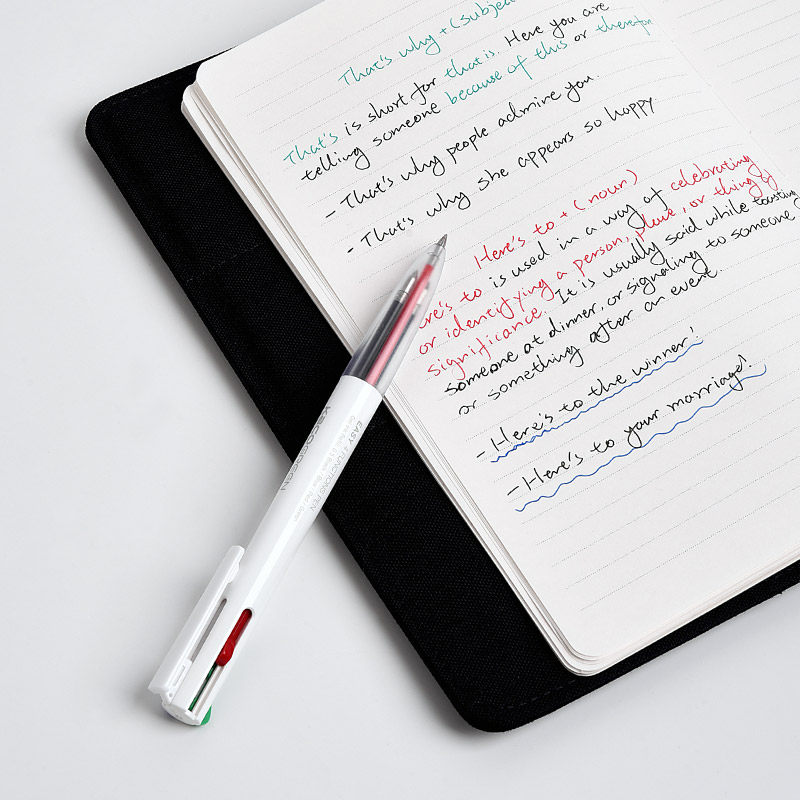 That's why + (subjec
That's is short for that is. Here you are
telling someone because of this or therefor
- That's why people admire you.
- That's why she appears so happy
Here's to + (noun)
ere's to is used in a way of celebrating
or identifying a person, place, or thing of
significance. It is usually said while toasting
someone at dinner, or signaling to someone
or something after an event.
- Here's to the winner!
- Here's to your marriage!
KACOGREEN
EASY FUNCTIONS PEN